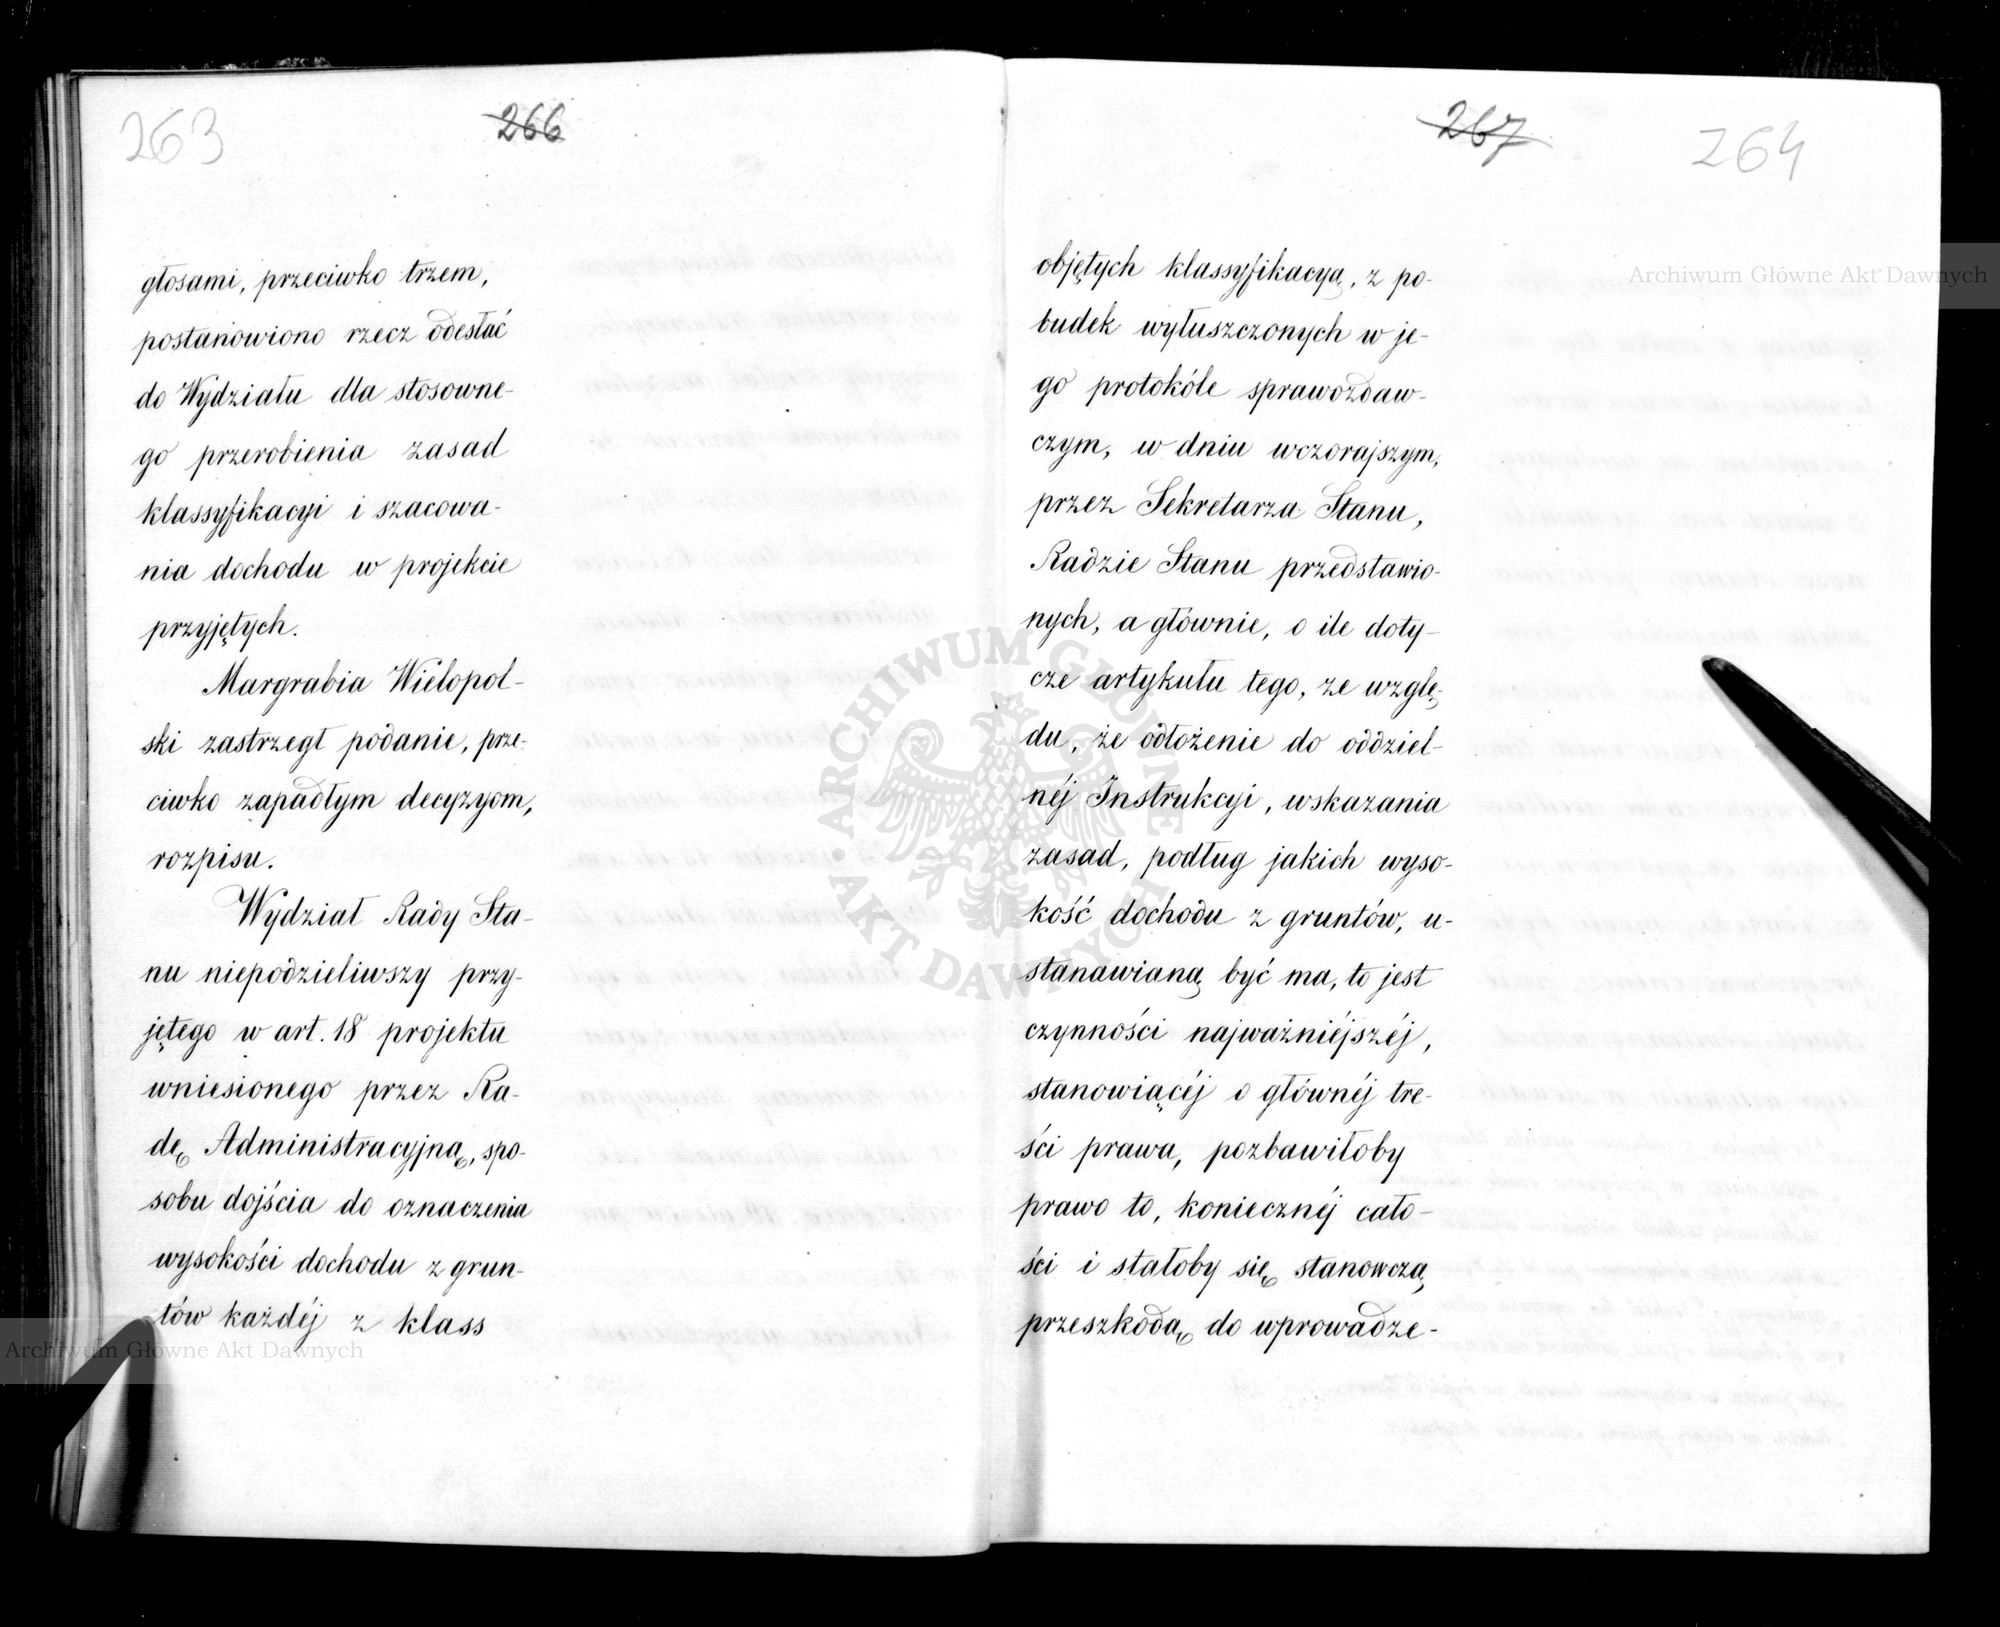 263
266
głosami, przeciwko trzem,
postanowiono rzecz odesłać
do Wydziału dla stosowne-
go przerobienia zasad
klassyfikacyi i szacowa-
nia dochodu w projekcie
przyjętych.
Margrabia Wielopol-
ski zastrzegł podanie, prze-
ciwko zapadłym decyzyom,
rozpisu.
Wydział Rady Sta-
nu niepodzieliwszy przy-
jętego w art. 18 projektu
wniesionego przez Ra-
dę Administracyjną, spo-
sobu dojścia do oznaczenia
wysokości dochodu z grun-
tów każdéj z klass
267
264
objętych klassyfikacyą, z po-
budek wyłuszczonych w je-
go protokóle sprawozdaw-
czym, w dniu wczorajszym,
przez Sekretarza Stanu,
Radzie Stanu przedstawio-
nych, a głównie, o ile doty-
cze artykułu tego, ze wzglę-
du, że odłożenie do oddziel-
néj Instrukcyi, wskazania
zasad, podług jakich wyso-
kość dochodu z gruntów, u-
stanawianą być ma, to jest
czynności najważniéjszéj,
stanowiącéj o głównéj tre-
ści prawa, pozbawiłoby
prawo to, koniecznéj cało-
ści i stałoby się stanowczą
przeszkodą do wprowadze-
Archiwum Główne Akt Dawnych
ARCHIWUM GŁÓWNE
AKT DAWNYCH
Archiwum Główne Akt Dawnych